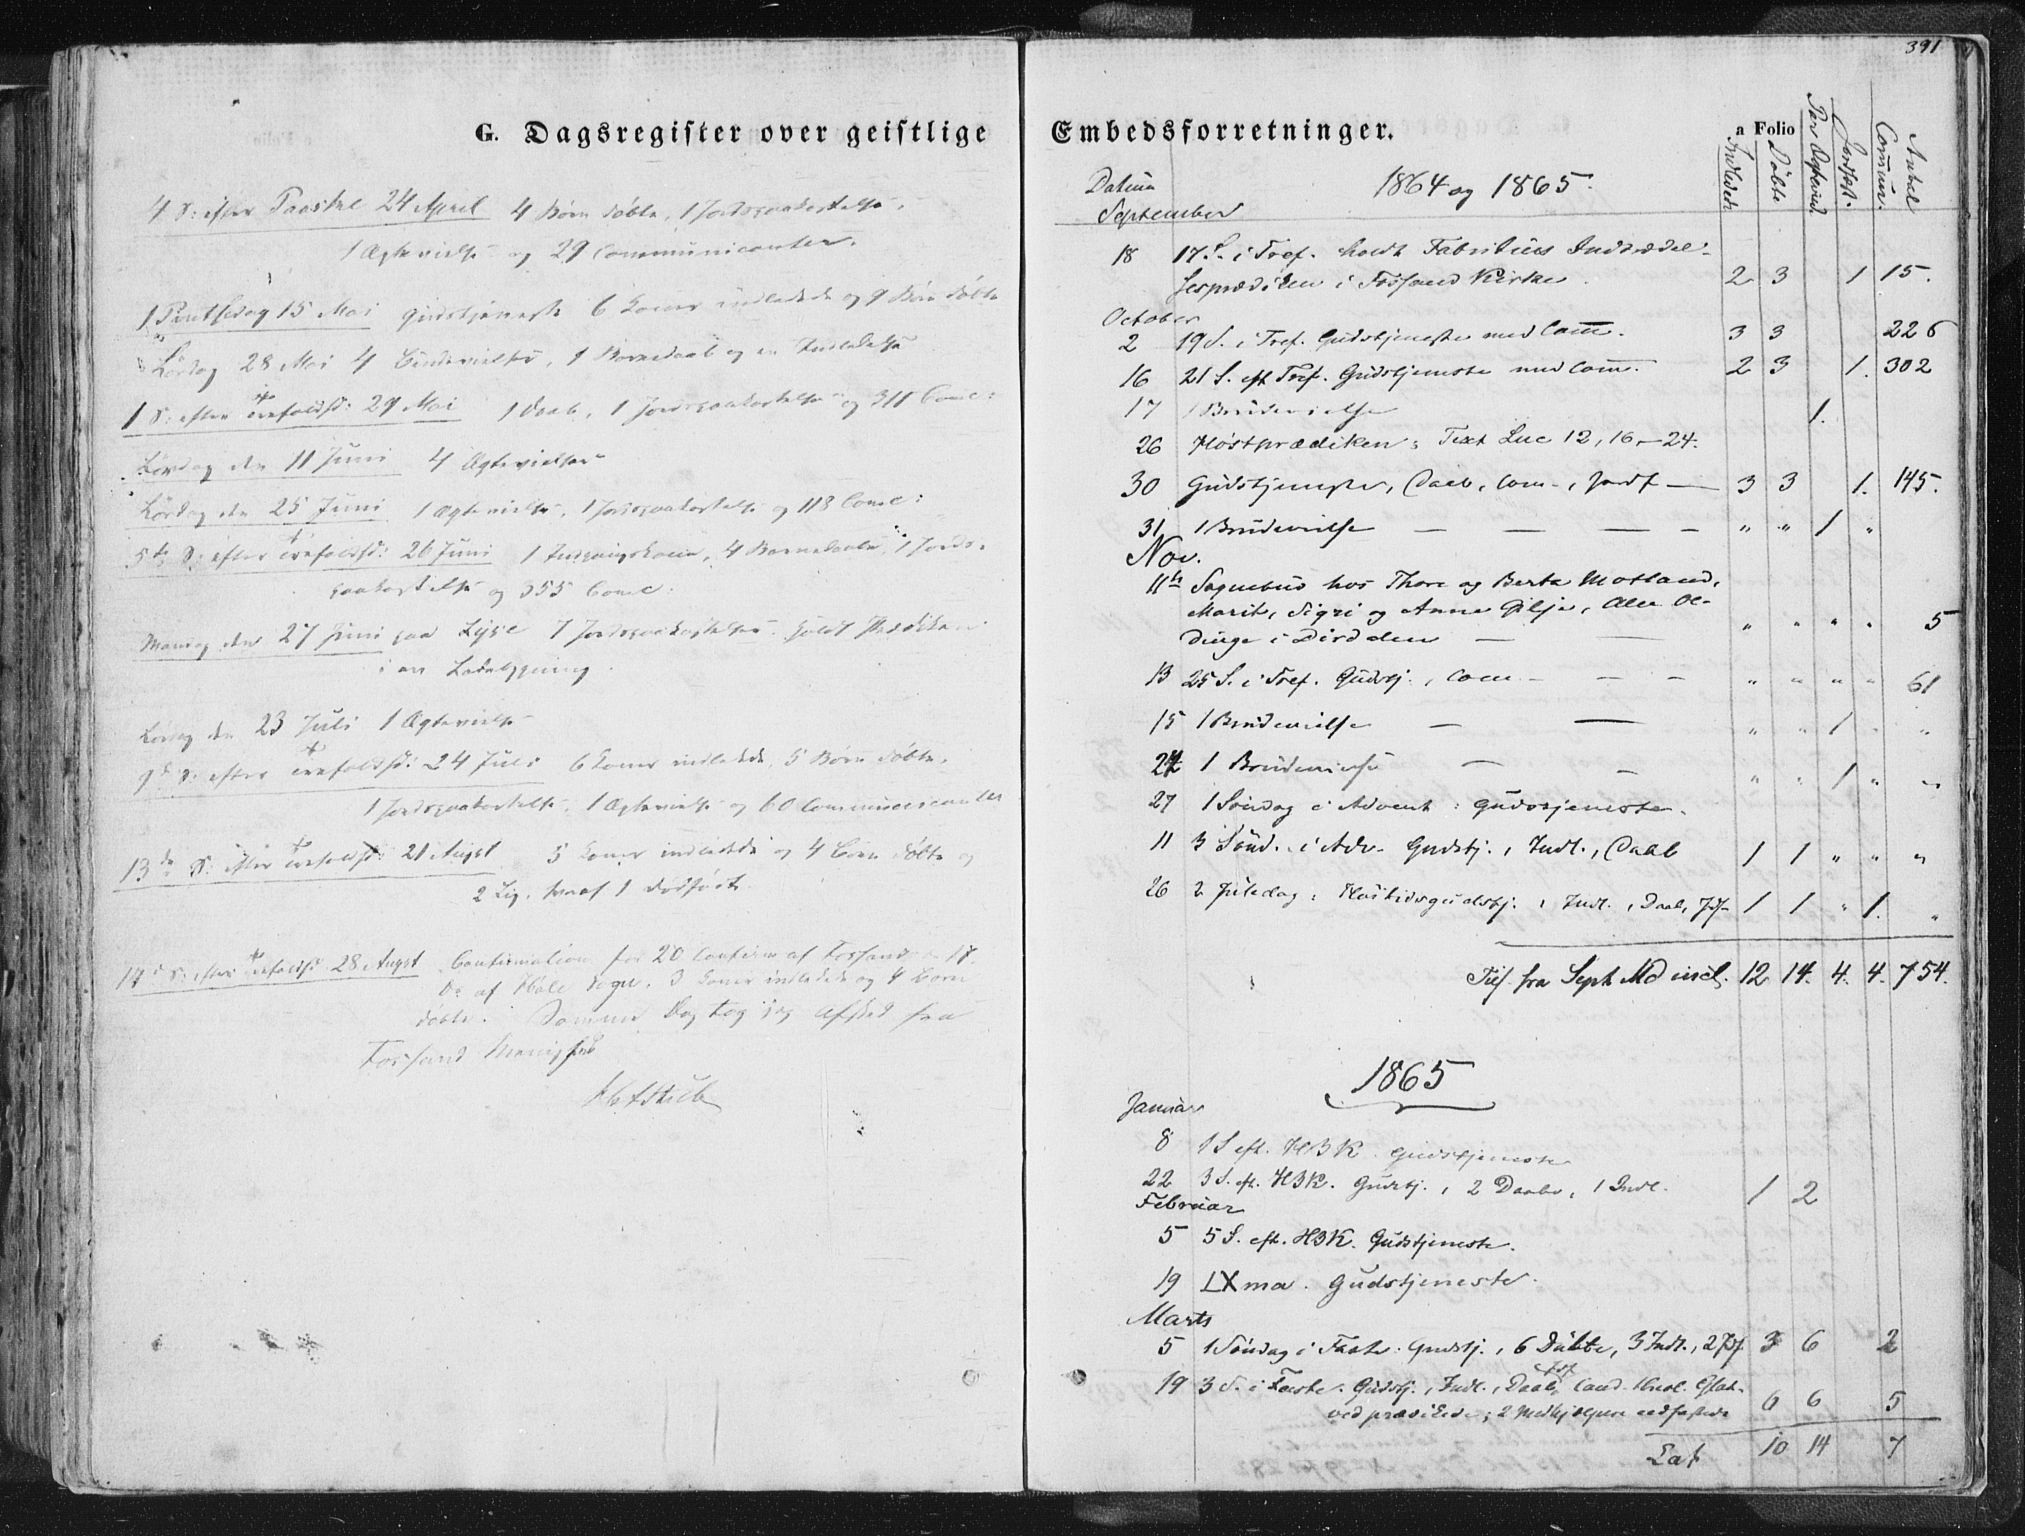 G. Dagsregister over geistlige
4 S: efter Paaske 24 April 4 Børn døbte, 1 Jordspaakastelse,
1 Ægtevielse og 29 Communicanter.
1 Pintsedag 15 Mai Gudstjeneste 6 Koner indledede og 9 Børn døbte
Lørdag 28 Mai 4 1 Barnedaab og en Indledelse
1 S: efter Trefoldsd: 29 Mai 1 Daab, 1 Jordspaakastelse og 311 Come:
Lørdag den 11 Juni 4 Ægtevielser
Lørdag den 25 Juni 1 Ægtevielse, 1 Jordspaakastelse og 118 Come:
5te S: efter Trefoldsd: 26 Juni 4 Barnedaabe, 1 Jords-
paakastelse og 355 Come:
Mandag den 27 Juni paa Lyse 7 Jordspaakastelser. Holdt Prædiken
i en Ladebygning.
Lørdag den 23 Juli 1 Ægtevielse
9de S: efter Trefoldsd: 24 Juli 6 Koner indledede, 5 Børn døbte,
1 Jordspaakastelse, 1 Ægtevielse og 60 Communicanter
13de S: efter Trefoldsd: 21 Augst 5 Koner indledede og 4 Børn døbte og
2 Lig, hvoraf 1 dødfødt.
14de S: efter Trefoldsd 28 Augst Confirmation for 20 Confirm af Fossand
Do af Hole Sogn. 3 Koner indledede og 4 Børn
døbte. Samme Dag tog jeg Afsked fra
Fossand Menighed
391
Embedsforretninger.
a Folio
Indledede
Døbte
Par Ægteviede
Jordfæst.
Commun.
Antal
Datum 1864 og 1865.
September
18 17 S. i Tref. holdt Fabritius Indtrædel-
sesprædiken i Fossand Kirke. 2 3 1 15.
October
2 19 S. i Tref. Gudstjeneste med Com. 3 3 226
16 21 S. eft Tref. Gudstjeneste med Com. 2 3 1. 302
17 1 Brudevielse 1.
26 Høstprædiken: Text Luc 12, 16-24.
30 Gudstjeneste, Daab, Com-, Jordf — 3 3 1. 145.
31 1 Brudevielse — — — — " " 1 "
Nov.
11te Sognebud hos Thore og Berta Motland,
Marit, Sigri og Anne Gilje, Ale Ol-
Dinge i Dirdalen — — " " " " 5
13 25 S. i Tref. Gudstj., Com — — — " " " " 61
15 1 Brudevielse — — " " 1 " "
24 1 Brudevielse — — " " 1 " "
27 1 Søndag i Advent: Gudstjeneste.
11 3 Sønd. i Adv. Gudstj., Indl., Daab 1 1 " " "
26 2 Juledag: Høitidsgudstj., Indl., Daab, Jdf- 1 1 " 1. "
Tils. fra Sept Md incl. 12 14. 4. 4. 754.
1865
Januar
8 1 S eft. H3K. Gudstjeneste
22 3 S. eft. H3K. Gudstj., 2 Daabe, 1 Indl. 1 2
Februar
5 5 S. eft. H3K. Gudstjeneste.
19 LXma. Gudstjeneste.
Marts
5 1 Søndag i Faste. Gudstj., 6 Døbte, 3 Indl., 2 Jdf 3 6 2
19 3 S. i Faste. Gudstj., Indl., Daab, Jdf Cand.
ved prædikede; 2 Medhjælpere edfæstede 6 6 5
Lat 10 14 7